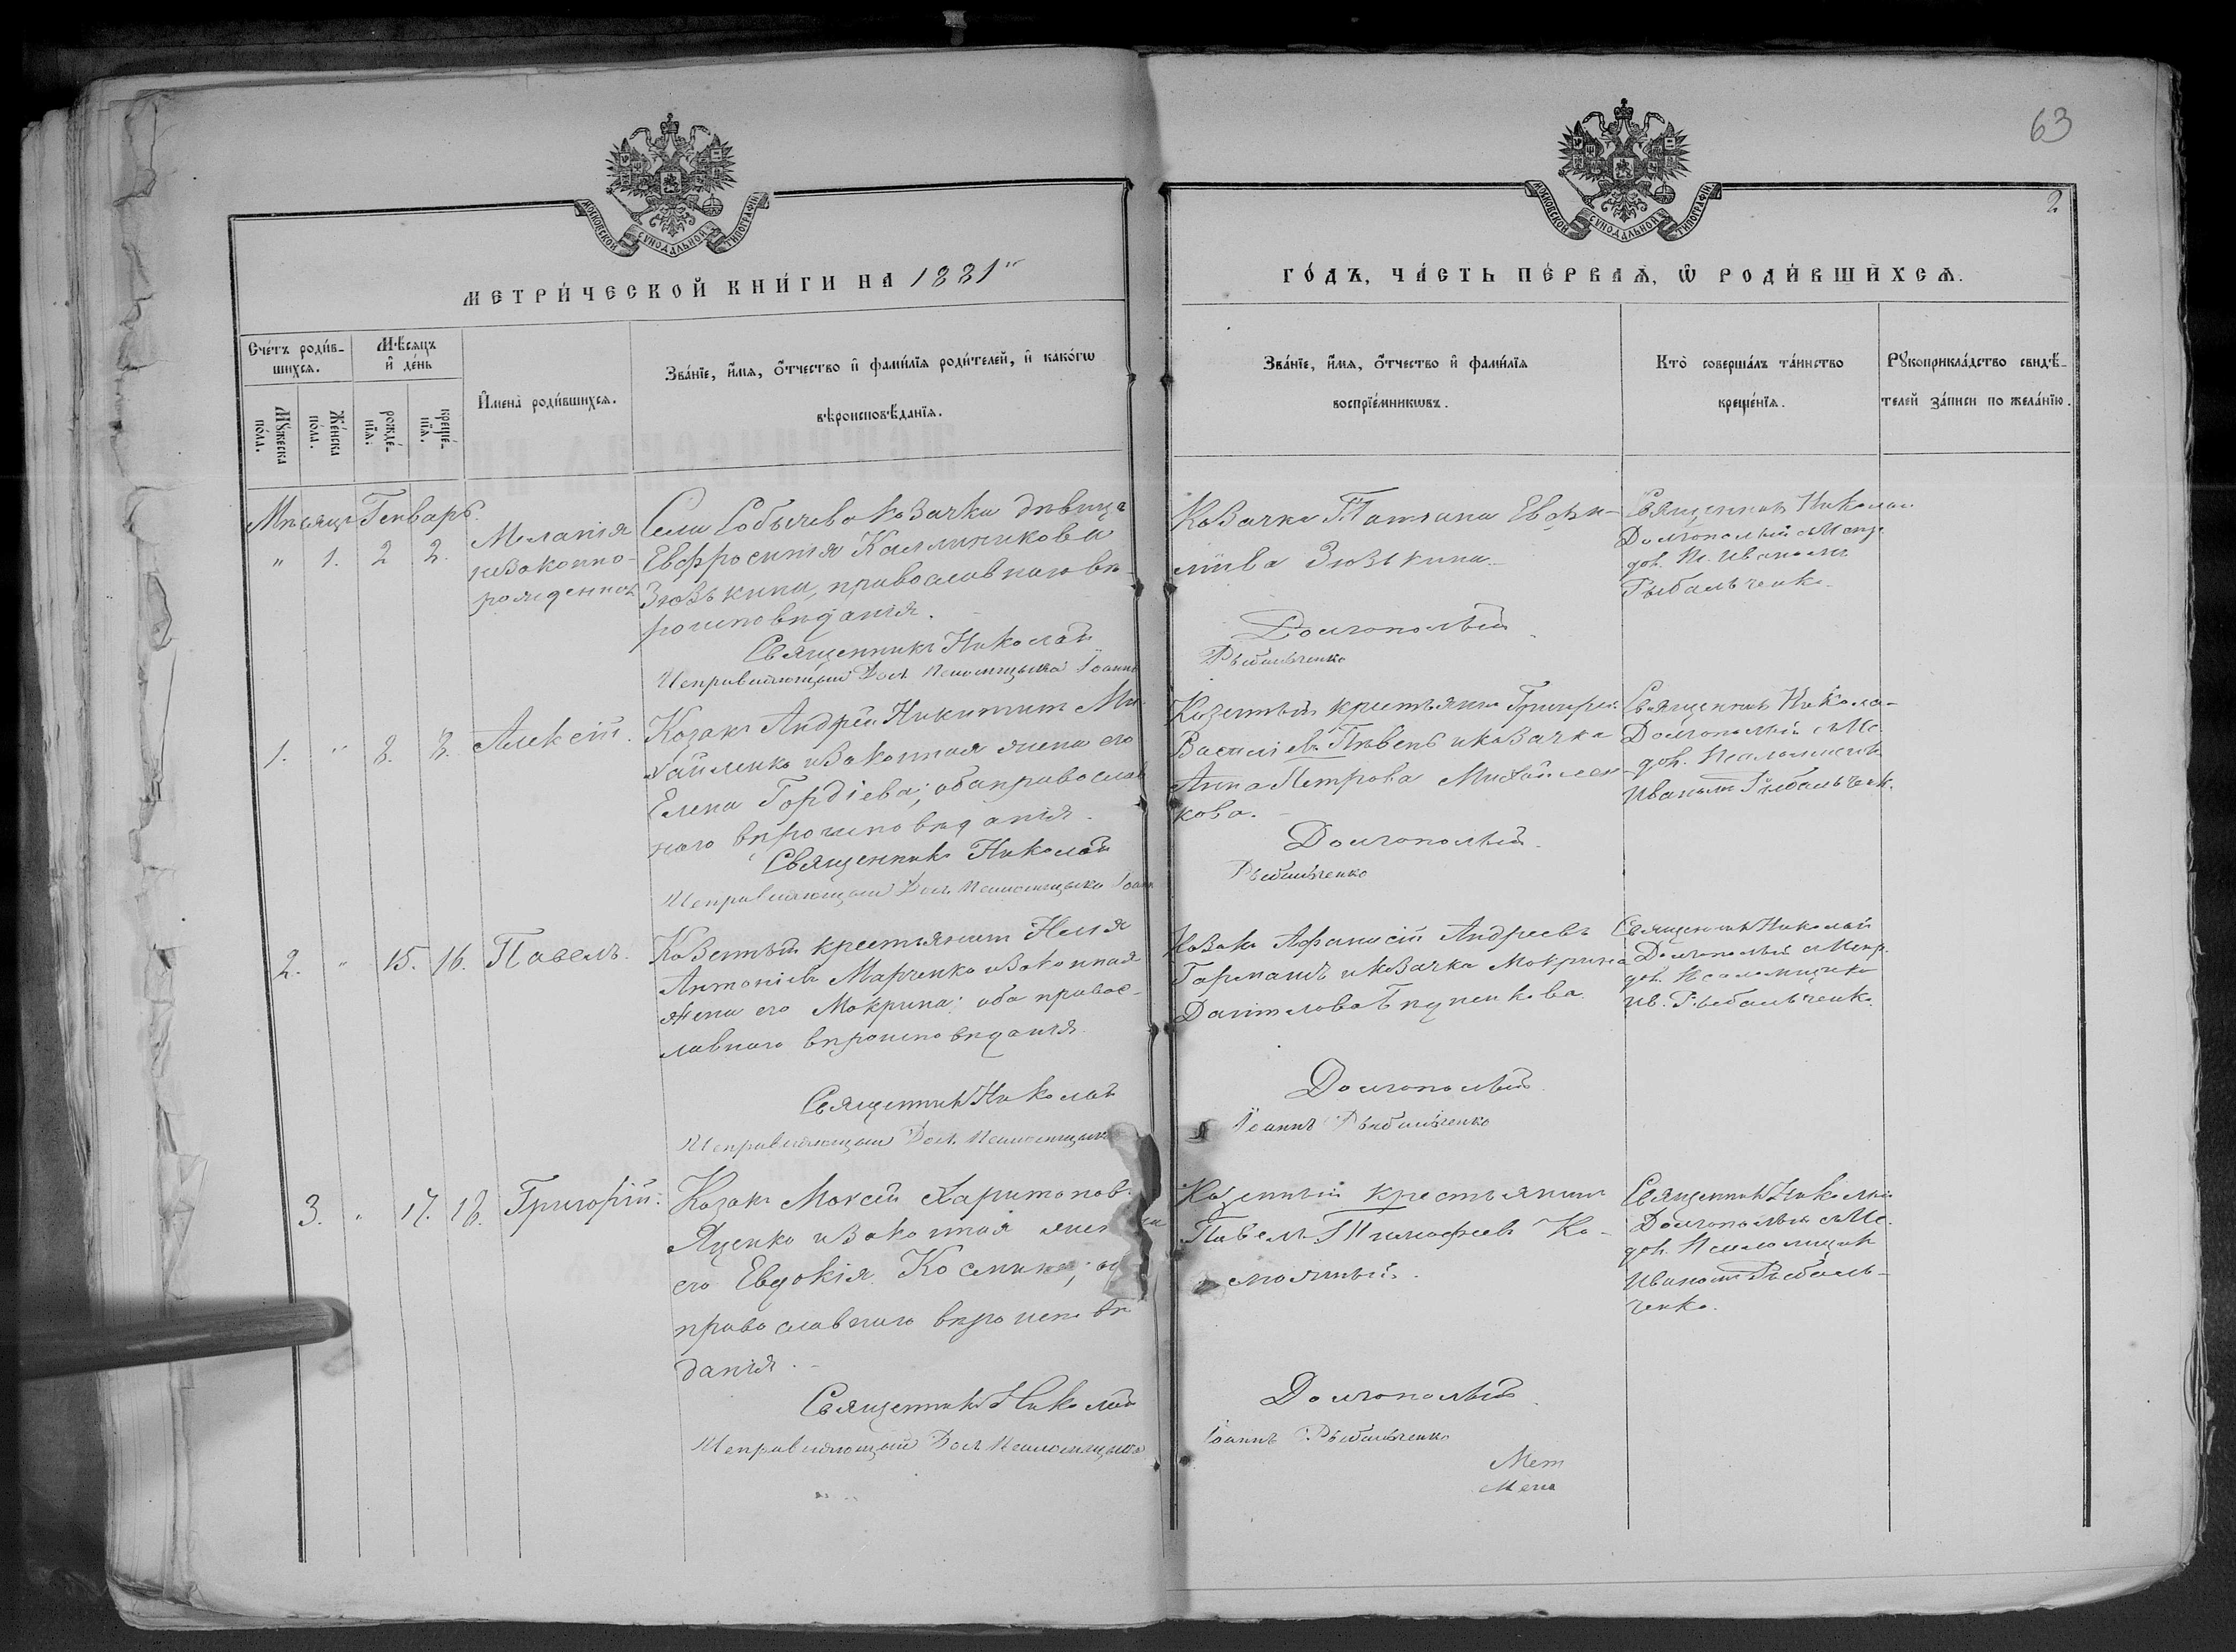 63
2
МОСКОВСКОЙ СУНОДАЛЬНОЙ ТИПОГРАФІИ
МОСКОВСКОЙ СУНОДАЛЬНОЙ ТИПОГРАФІИ
МЕТРИ́ЧЕСКОЙ КНИ́ГИ НА 1881
ГО́ДЪ, ЧА́СТЬ ПЕ́РВАѦ, Ѿ РОДИ́ВШИХСѦ.
Сче́тъ роди́в-
шихсѧ.
Мꙋ́жеска по́ла.
Же́нска по́ла.
Мѣ́сѧцъ
и҆ де́нь
рожде́-
нїѧ.
креще́-
нїѧ.
И҆мена̀ роди́вшихсѧ.
Зва́нїе, и҆́мѧ, ѻ҆́тчество и҆ фами́лїѧ роди́телей, и҆ како́гѡ
вѣроисповѣ́данїѧ.
Зва́нїе, и҆́мѧ, ѻ҆́тчество и҆ фами́лїѧ
воспрїе́мникѡвъ.
Кто̀ соверша́лъ та́инство
креще́нїѧ.
Рꙋкоприкла́дство свидѣ́-
телей за́писи по жела́нїю.
Мѣсяцъ Генварь.
" 1. 2 2.
Меланія
незаконно-
рожденная
Села Собычева козачка дѣвица
Евфросинія Каллиникова
Зюзькина, православнаго вѣ-
роисповѣданія.
Священникъ Николай
Исправляющій Дол. Псаломщика Іоаннъ
Козачка Татіана Евфи-
міива Зюзькина.
Долгополый
Рыбальченко
Священникъ Николай
Долгополый
дол. Пс. Иваномъ
Рыбальченко.
1. " 8. 8. Алексѣй.
Козакъ Андрей Никитинъ Ми-
хайленко и законная жена его
Елена Гордіева; оба православ-
наго вѣроисповѣданія.
Священникъ Николай
Исправляющій Дол. Псаломщика Іоаннъ
Казенный крестьянинъ Григорій
Василіевъ Пивень и козачка
Анна Петрова Михайлен-
кова.
Долгополый
Рыбальченко
Священникъ Никола-
Долгополый
дол. Псаломщик
Иваномъ Рыбальченк.
2. " 15. 16. Павелъ.
Козенный крестьянинъ Илія
Антоніевъ Марченко и законная
жена его Мокрина; оба правос-
лавнаго вѣроисповѣданія.
Священникъ Николай
Исправляющій Дол. Псаломщика
Козакъ Афанасій Андреевъ
Гарманъ и козачка Мокрина
Даніилова
Долгополый
Іоаннъ Рыбальченко
Священникъ Николай
Долгополый
дол. Псаломщика
Ив. Рыбальченко.
3. " 17. 18. Григорій.
Козакъ Моисей Харитоновъ
Яценко и законная жена
его Евдокія Космина;
православнаго вѣроисповѣ
данія.
Священникъ Николай
Исправляющій Дол. Псаломщика
Козенный крестьянинъ
Павелъ Тимофеевъ Ко-
Долгополый
Іоаннъ Рыбальченко
Священникъ Николай
Долгополый
дол. Псаломщик
Иваномъ Рыбаль-
ченко.